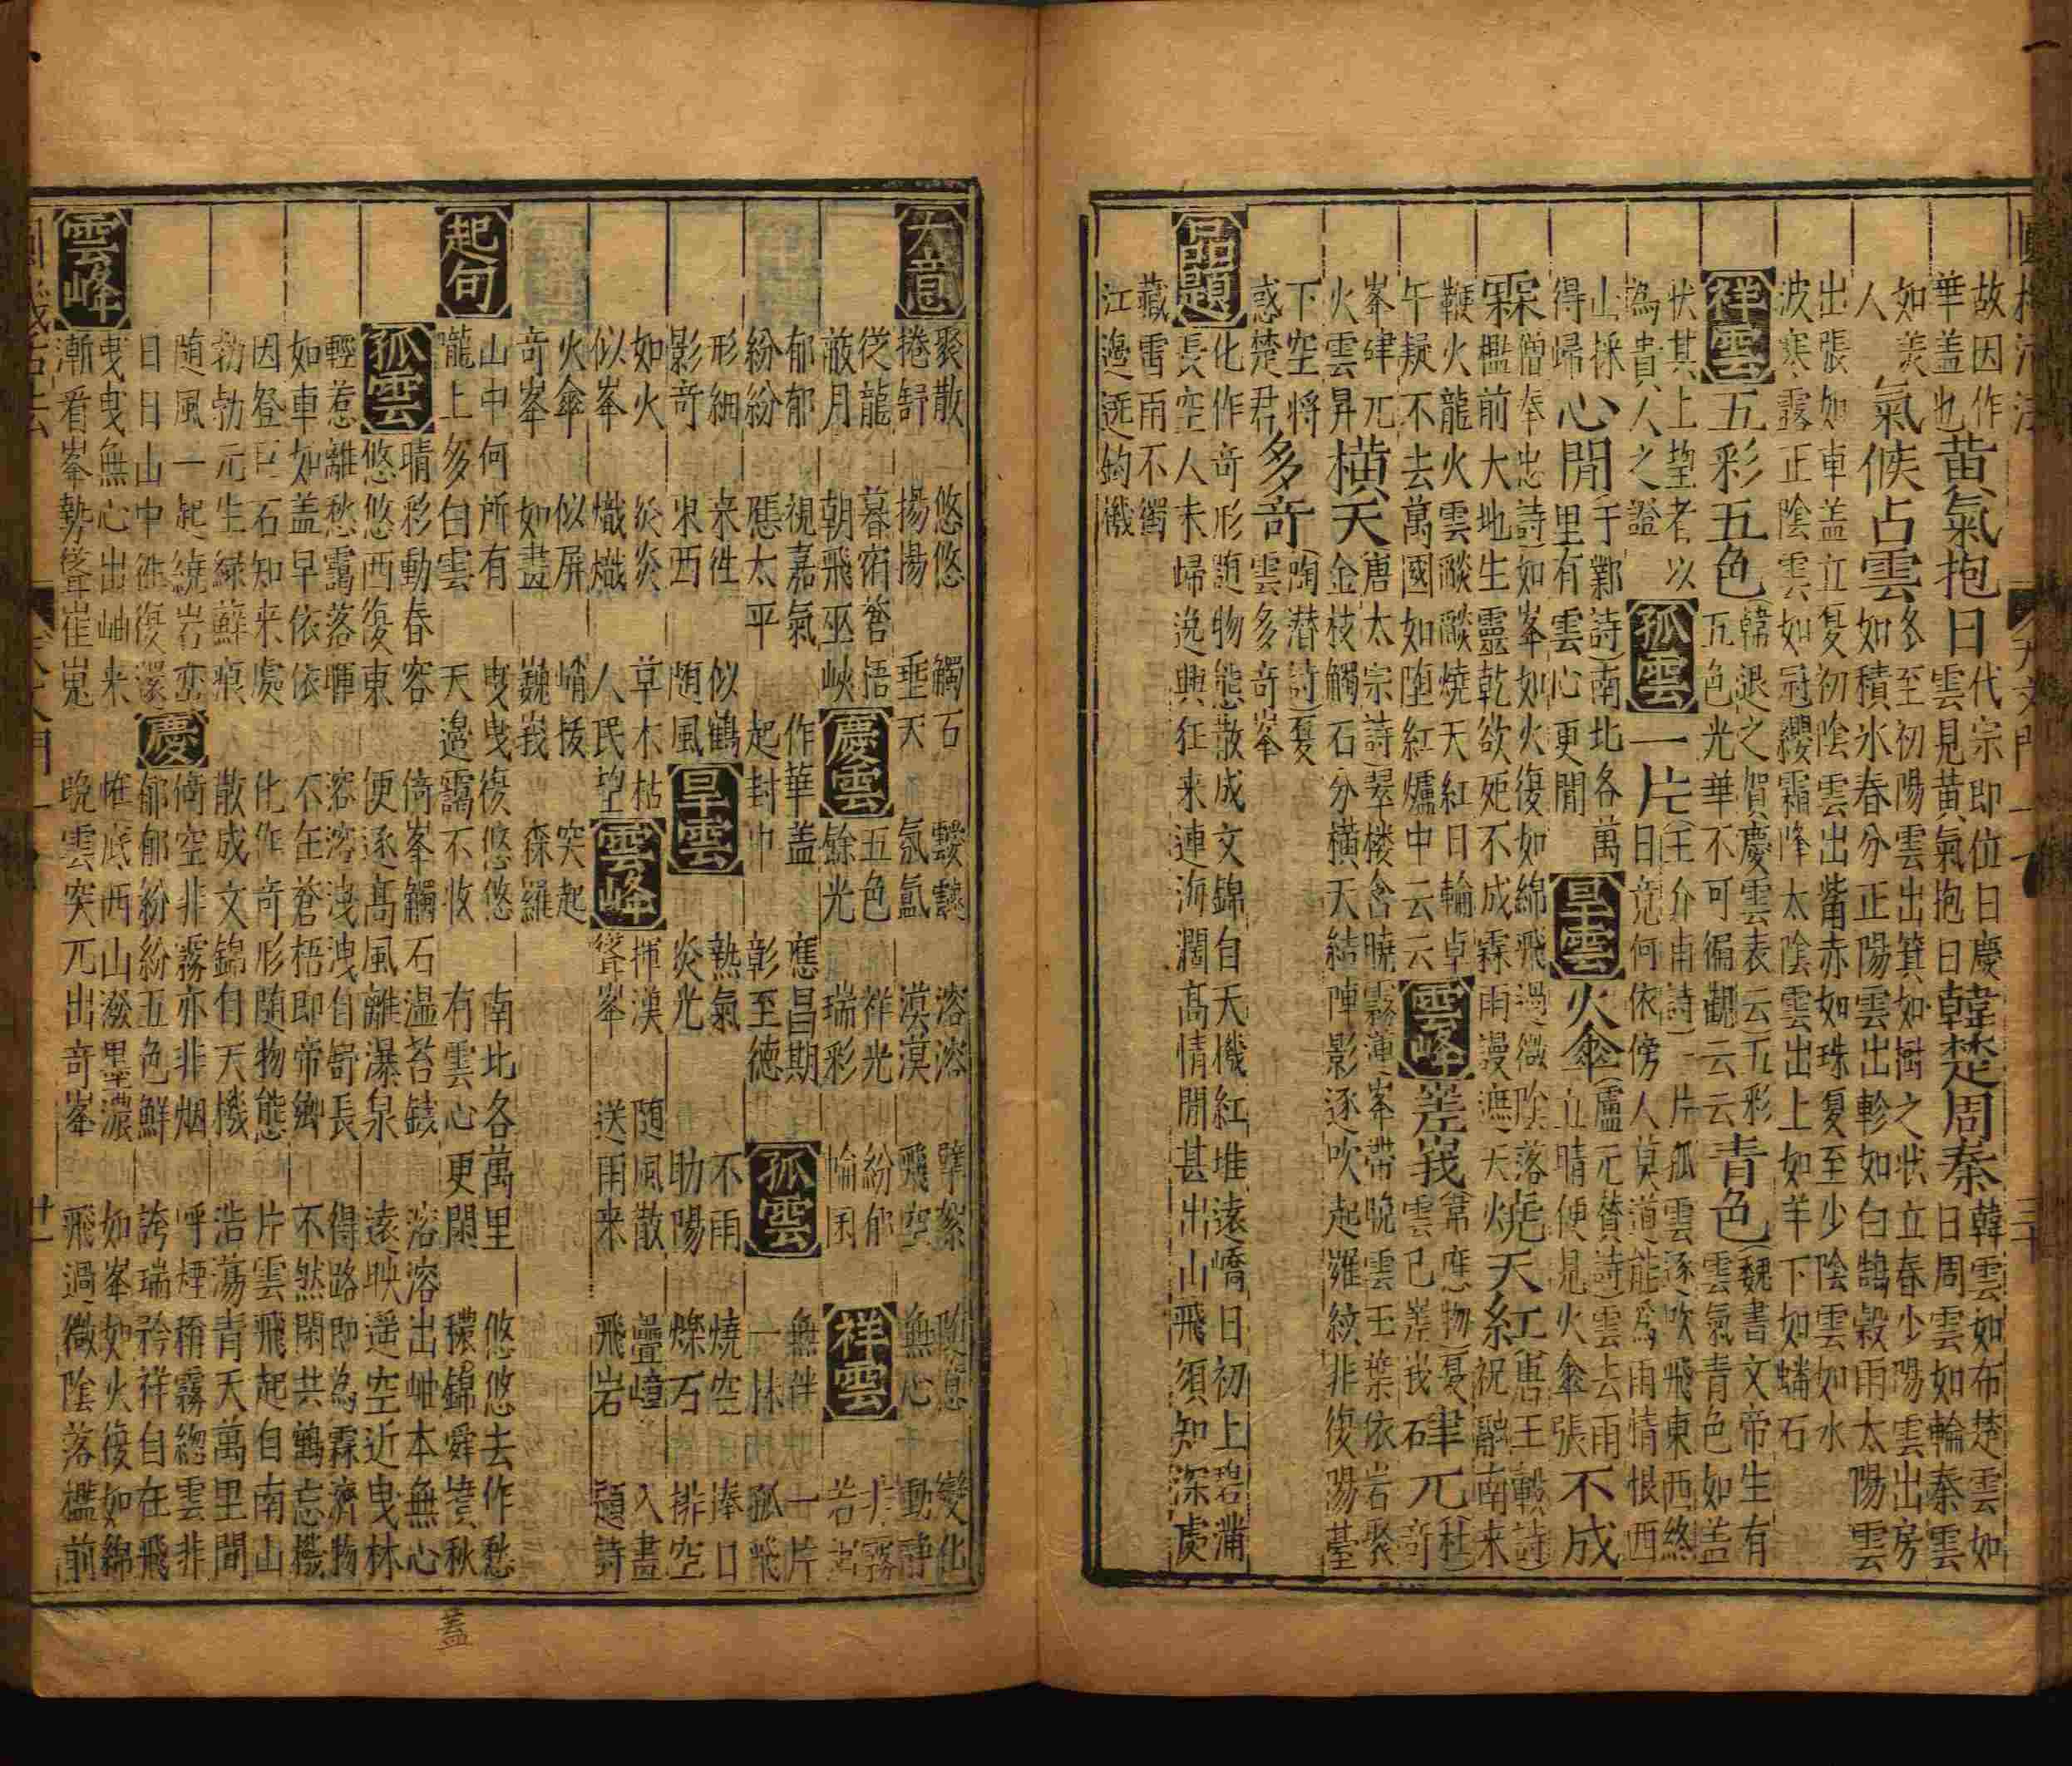 故因作
華蓋也
黃氣抱日
代宗即位日慶
雲見黃氣抱日
韓楚周秦
韓雲如布楚雲如
日周雲如輪秦雲
如美
人
氣候占雲
冬至初陽雲出箕如樹之狀立春少陽雲出房
如積水春分正陽雲出軫如白鵠穀雨太陽雲
出張如車蓋立夏初陰雲出觜赤如珠夏至少陰雲如水
波寒露正陰雲如冠纓霜降太陰雲出上如羊下如蟠石
祥雲
五彩五色
韓退之賀慶雲表云五彩
五色光華不可徧觀云云
青色
魏書文帝生有
雲氣青色如蓋
狀其上望者以
為貴人之證
孤雲
一片
王介甫詩一片孤雲逐吹飛東西終
日竟何依傍人莫道能為雨情恨西
山採手鄭詩南北各萬
得歸心閒里有雲心更閒
旱雲
火傘
盧元贊詩雲去雨
立晴便見火傘張
不成
霖
僧奉忠詩如峯如火復如綿飛過微陰落
檻前大地生靈乾欲死不成霖雨謾遮天
燒天紅
唐王轂詩
祝融南来
鞭火龍火雲燄燄燒天紅日輪卓
午疑不去萬國如墮紅爐中云云
雲峰
差峩
韋應物夏
雲已差峩
硉兀
杜
奇
峯硉兀
火雲昇
橫天
唐太宗詩翠楼含曉霧蓮峯帶晚雲玉葉依岩聚
金枝觸石分橫天結陣影逐吹起羅紋非復陽臺
下空將
惑楚君
多奇
陶潜詩夏
雲多奇峯
品題
化作奇形隨物態散成文錦自天機紅堆遠嶠日初上碧滿
長空人未歸逸興狂来連海濶高情閒甚出山飛須知深處
藏雷雨不獨
江邊近釣磯
大意
聚散 悠悠 觸石 靉靆 溶溶 擘絮 變化
捲舒 揚揚 垂天 氛氳 漠漠 飛空 無心 動靜
從龍 暮宿蒼梧
蔽月 朝飛巫峽
慶雲
五色 祥光 紛郁
餘光 瑞彩 輪囷
祥雲
非霧
若烟
郁郁 視嘉氣 作華蓋 應昌期
紛紛 應太平 起封中 彰至德
孤雲
無伴 一片
一抹 孤飛
形細 来徃 似鶴
影奇 東西 随風
旱雲
熱氣 不雨 燒空 捧日
炎光 助陽 爍石 排空
如火 炎炎 草木枯
似峯 熾熾 人民望
雲峰
揮漢 随風散 疊嶂 入畫
聳峯 送雨来 飛岩 題詩
火傘 似屏 峭拔 突起
奇峯 如畫 巍峩 森羅
起句
山中何所有 曳曳復悠悠 南北各萬里 悠悠去作愁
隴上多白雲 天邊靄不收 有雲心更閒 穠錦舜墳秋
孤雲
晴彩動春容 倚峯觸石温苔錢 溶溶出岫本無心
悠悠西復東 便逐高風離瀑泉 遠映遥空近曳林
輕惹離愁靄落暉 溶溶洩洩自寄長 得路即為霖濟物
如車如蓋早依依 不在蒼梧即帝鄉 不然閑共鶴忘機
因登巨石知来處 化作奇形随物態 片雲飛起自南山
勃勃元生緑蘚痕 散成文錦自天機 浩蕩青天萬里間
随風一起繞岩巒 倚空非霧亦非烟 呼煙稱霧總雲非
日日山中徃復還
慶
郁郁紛紛五色鮮 誇瑞矜祥自在飛
曳曳無心出岫来 惟底西山潑墨濃 如峯如火復如綿
雲峰
漸看峯勢聳崔嵬 晚雲突兀出奇峯 飛過微陰落檻前
蓋